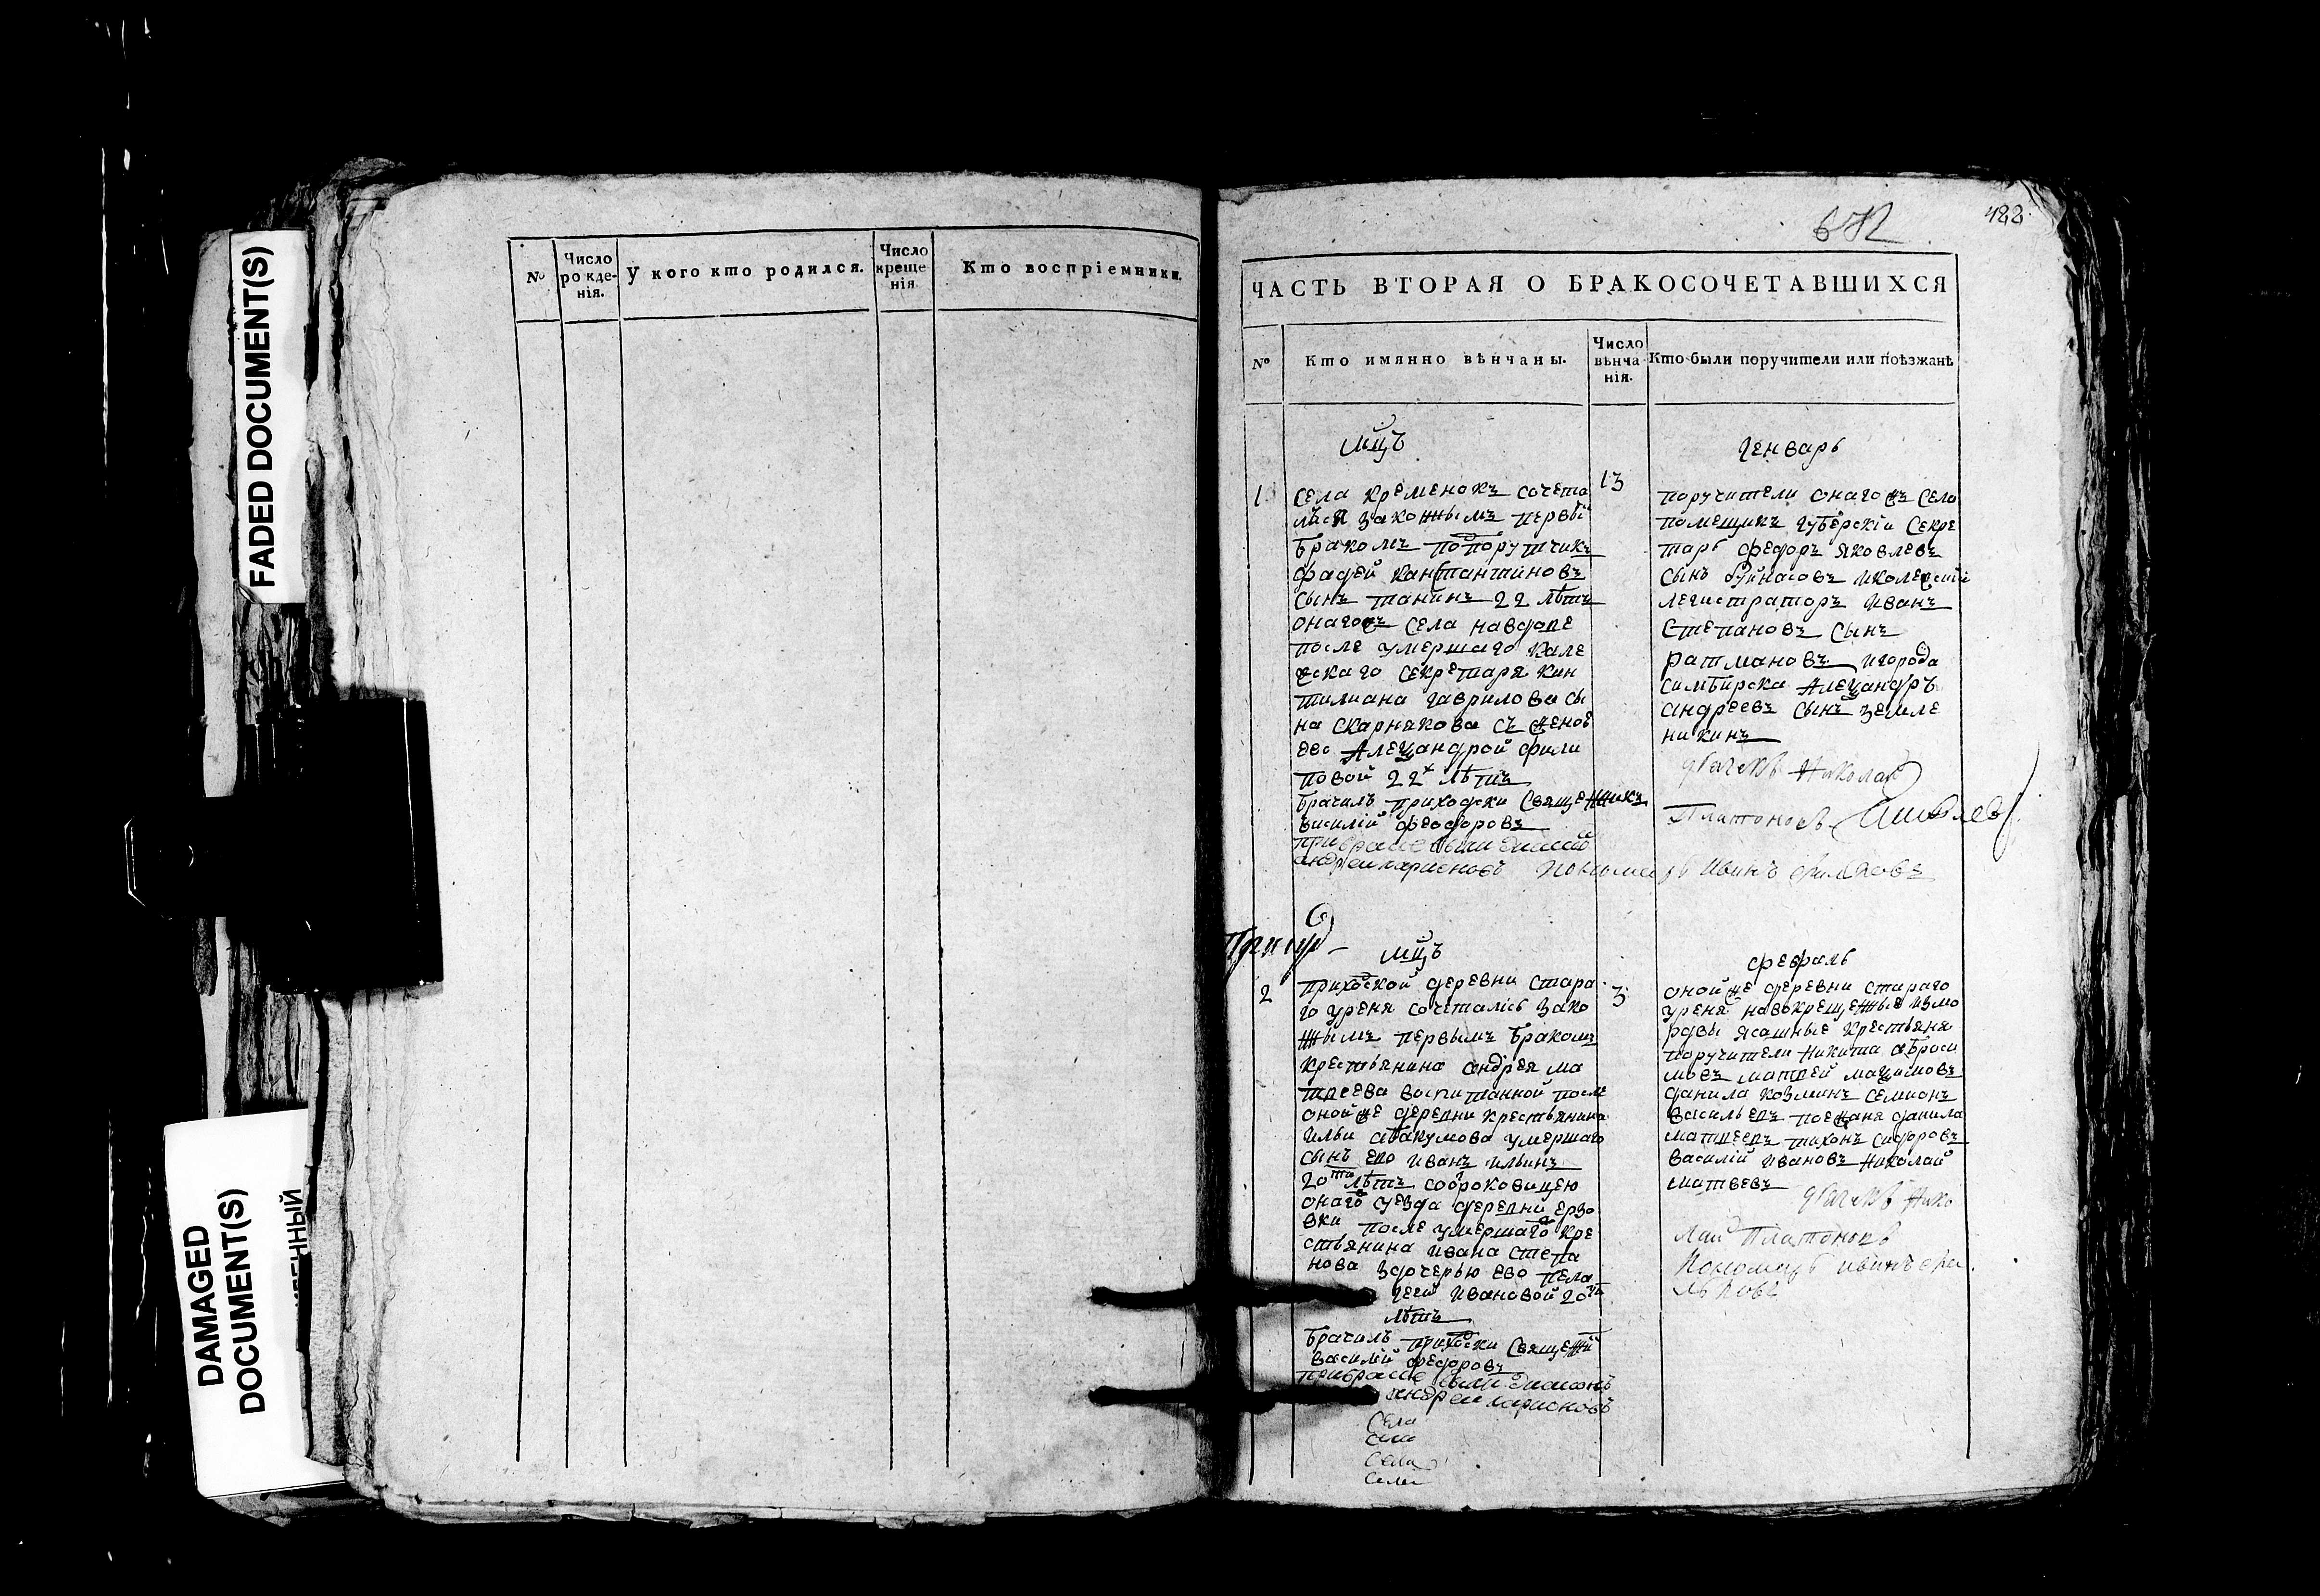 FADED DOCUMENT(S)
DAMAGED
DOCUMENT(S)
№
Число
рожде-
нія.
У кого кто родился.
Число
креще
нія
Кто воспріемники.
488
ЧАСТЬ ВТОРАЯ О БРАКОСОЧЕТАВШИХСЯ
№
Кто имянно вѣнчаны.
Число
вѣнча
нія.
Кто были поручители или поѣзжанѣ
мцъ
генварь
1
13
села кременокъ сочета
лься законнымъ первы
бракомъ подпорутчикъ
фадей канстантиновъ
сынъ танинъ 22 лѣтъ
онагожъ села навдове
после умершаго кале
жскаго секретаря кин
тилиана гаврилова сы
на скарнякова съ женое
ево Александрой фили
повой 22х лѣтъ
брачилъ приходски священникъ
василій феодоровъ
прибраке были
андреи ларионовъ пономарь Иванъ
поручители онагожъ села
помещикъ губерскій секре
тарь федоръ яковлевъ
сынъ иколежский
легистраторъ иванъ
степановъ сынъ
ратмановъ игорода
симбирска Александръ
андреевъ сынъ земле
никинъ
дьячекъ Николай
Платоновъ
мцъ
февраль
2
3
приходской деревни стара
го уреня сочетались зако
ннымъ первымъ бракомъ
крестьянина андрея ма
твеева воспитанной после
оной же деревни крестьянина
ильи абакумова умершаго
сынъ ево иванъ ильинъ
20ти лѣтъ
онаго уезда деревни ерзо
вки после умершаго кре
стьянина ивана степа
нова здочерью ево пела
геей ивановой 20ти
лѣтъ
брачилъ приходски священи
василій федоровъ
прибраке были
андреи ларионовъ
села
села
села
села
оной же деревни стараго
уреня новокрещенные измо
рдвы ясашные крестьяня
поручители никита аброси
мовъ матвей максимовъ
данила козминъ семионъ
васильевъ поежаня данила
матвеевъ тихонъ сидоровъ
василій ивановъ николай
матвевъ
дьячекъ Нико
лай Платоновъ
Пономарь иванъ